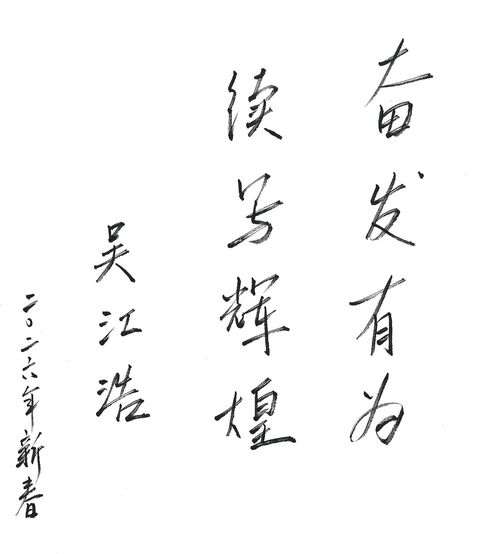 奋发有为
续写辉煌
吴江浩
二〇二六年新春